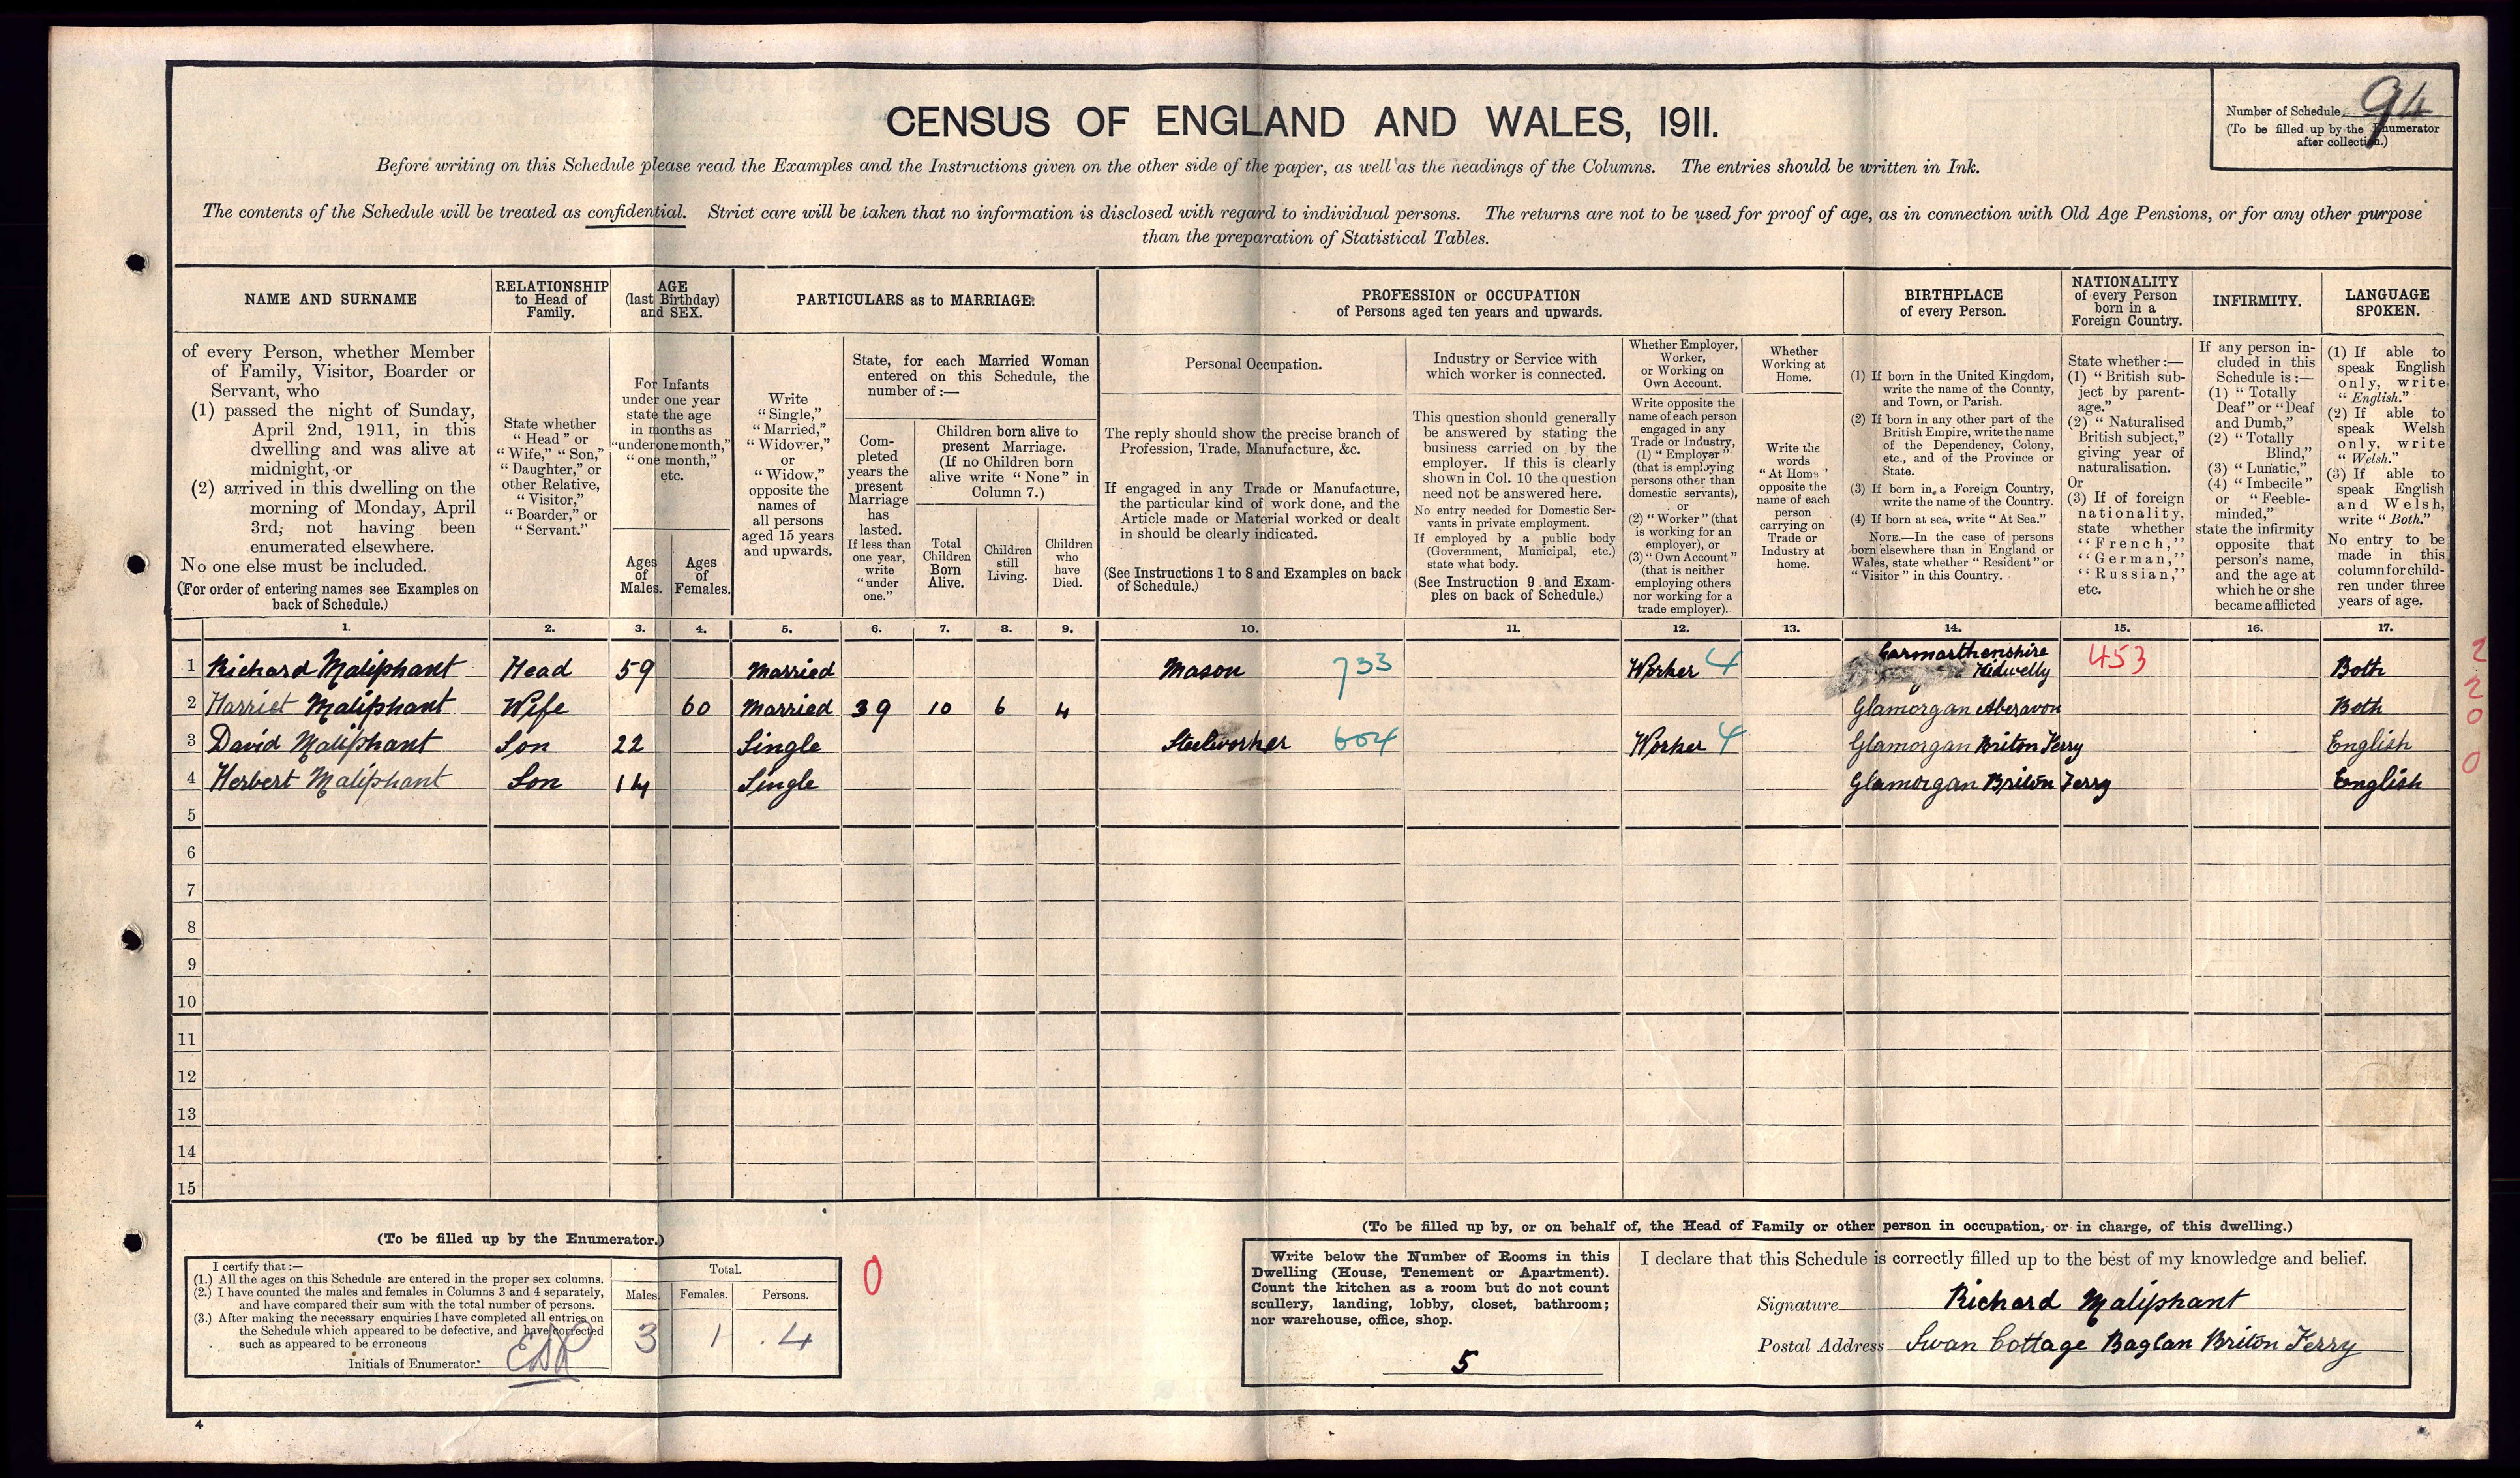 CENSUS OF ENGLAND AND WALES, 1911.
Number of Schedule 94
(To be filled up by the Enumerator
after collection.)
Before writing on this Schedule please read the Examples and the Instructions given on the other side of the paper, as well as the headings of the Columns. The entries should be written in Ink.
The contents of the Schedule will be treated as confidential. Strict care will be taken that no information is disclosed with regard to individual persons. The returns are not to be used for proof of age, as in connection with Old Age Pensions, or for any other purpose
than the preparation of Statistical Tables.
NAME AND SURNAME
of every Person, whether Member
of Family, Visitor, Boarder or
Servant, who
(1) passed the night of Sunday,
April 2nd, 1911, in this
dwelling and was alive at
midnight, or
(2) arrived in this dwelling on the
morning of Monday, April
3rd, not having been
enumerated elsewhere.
No one else must be included.
(For order of entering names see Examples on
back of Schedule.)
RELATIONSHIP
to Head of
Family.
State whether
"Head" or
"Wife," "Son,"
"Daughter," or
other Relative,
"Visitor,"
"Boarder," or
"Servant."
AGE
(last Birthday)
and SEX.
For Infants
under one year
state the age
in months as
"under one month,"
"one month,"
etc.
Ages
of
Males.
Ages
of
Females.
PARTICULARS as to MARRIAGE.
Write
"Single,"
"Married,"
"Widower,"
or
"Widow,"
opposite the
names of
all persons
aged 15 years
and upwards.
State, for each Married Woman
entered on this Schedule, the
number of :—
Com-
pleted
years the
present
Marriage
has
lasted.
If less than
one year,
write
"under
one."
Children born alive to
present Marriage.
(If no Children born
alive write "None" in
Column 7.)
Total
Children
Born
Alive.
Children
still
Living.
Children
who
have
Died.
PROFESSION or OCCUPATION
of Persons aged ten years and upwards.
Personal Occupation.
The reply should show the precise branch of
Profession, Trade, Manufacture, &c.
If engaged in any Trade or Manufacture,
the particular kind of work done, and the
Article made or Material worked or dealt
in should be clearly indicated.
(See Instructions 1 to 8 and Examples on back
of Schedule.)
Industry or Service with
which worker is connected.
This question should generally
be answered by stating the
business carried on by the
employer. If this is clearly
shown in Col. 10 the question
need not be answered here.
No entry needed for Domestic Ser-
vants in private employment.
If employed by a public body
(Government, Municipal, etc.)
state what body.
(See Instruction 9 and Exam-
ples on back of Schedule.)
Whether Employer,
Worker,
or Working on
Own Account.
Write opposite the
name of each person
engaged in any
Trade or Industry,
(1) "Employer"
(that is employing
persons other than
domestic servants),
or
(2) "Worker" (that
is working for an
employer), or
(3) "Own Account"
(that is neither
employing others
nor working for a
trade employer).
Whether
Working at
Home.
Write the
words
"At Home"
opposite the
name of each
person
carrying on
Trade or
Industry at
home.
BIRTHPLACE
of every Person.
(1) If born in the United Kingdom,
write the name of the County,
and Town, or Parish.
(2) If born in any other part of the
British Empire, write the name
of the Dependency, Colony,
etc., and of the Province or
State.
(3) If born in a Foreign Country,
write the name of the Country.
(4) If born at sea, write "At Sea."
NOTE.—In the case of persons
born elsewhere than in England or
Wales, state whether "Resident" or
"Visitor" in this Country.
NATIONALITY
of every Person
born in a
Foreign Country.
State whether :—
(1) "British sub-
ject by parent-
age."
(2) "Naturalised
British subject,"
giving year of
naturalisation.
Or
(3) If of foreign
nationality,
state whether
"French,"
"German,"
"Russian,"
etc.
INFIRMITY.
If any person in-
cluded in this
Schedule is :—
(1) "Totally
Deaf" or "Deaf
and Dumb,"
(2) "Totally
Blind,"
(3) "Lunatic,"
(4) "Imbecile"
or "Feeble-
minded,"
state the infirmity
opposite that
person's name,
and the age at
which he or she
became afflicted
LANGUAGE
SPOKEN.
(1) If able to
speak English
only, write
"English."
(2) If able to
speak Welsh
only, write
"Welsh."
(3) If able to
speak English
and Welsh,
write "Both."
No entry to be
made in this
column for child-
ren under three
years of age.
1. 2. 3. 4. 5. 6. 7. 8. 9. 10. 11. 12. 13. 14. 15. 16. 17.
1 Richard Maliphant Head 59 Married Mason 733 Worker 4 Carmarthenshire Kidwelly 453 Both 2
2 Harriet Maliphant Wife 60 Married 39 10 6 4 Glamorgan Aberavon Both 2
3 David Maliphant Son 22 Single Steelworker 604 Worker 4 Glamorgan Briton Ferry English 0
4 Herbert Maliphant Son 14 Single Glamorgan Briton Ferry English 0
5
6
7
8
9
10
11
12
13
14
15
(To be filled up by the Enumerator.)
I certify that :—
(1.) All the ages on this Schedule are entered in the proper sex columns.
(2.) I have counted the males and females in Columns 3 and 4 separately,
and have compared their sum with the total number of persons.
(3.) After making the necessary enquiries I have completed all entries on
the Schedule which appeared to be defective, and have corrected
such as appeared to be erroneous
Initials of Enumerator
Total.
Males. Females. Persons.
3 1 4
0
(To be filled up by, or on behalf of, the Head of Family or other person in occupation, or in charge, of this dwelling.)
Write below the Number of Rooms in this
Dwelling (House, Tenement or Apartment).
Count the kitchen as a room but do not count
scullery, landing, lobby, closet, bathroom;
nor warehouse, office, shop.
5
I declare that this Schedule is correctly filled up to the best of my knowledge and belief.
Signature Richard Maliphant
Postal Address Swan Cottage Baglan Briton Ferry
4